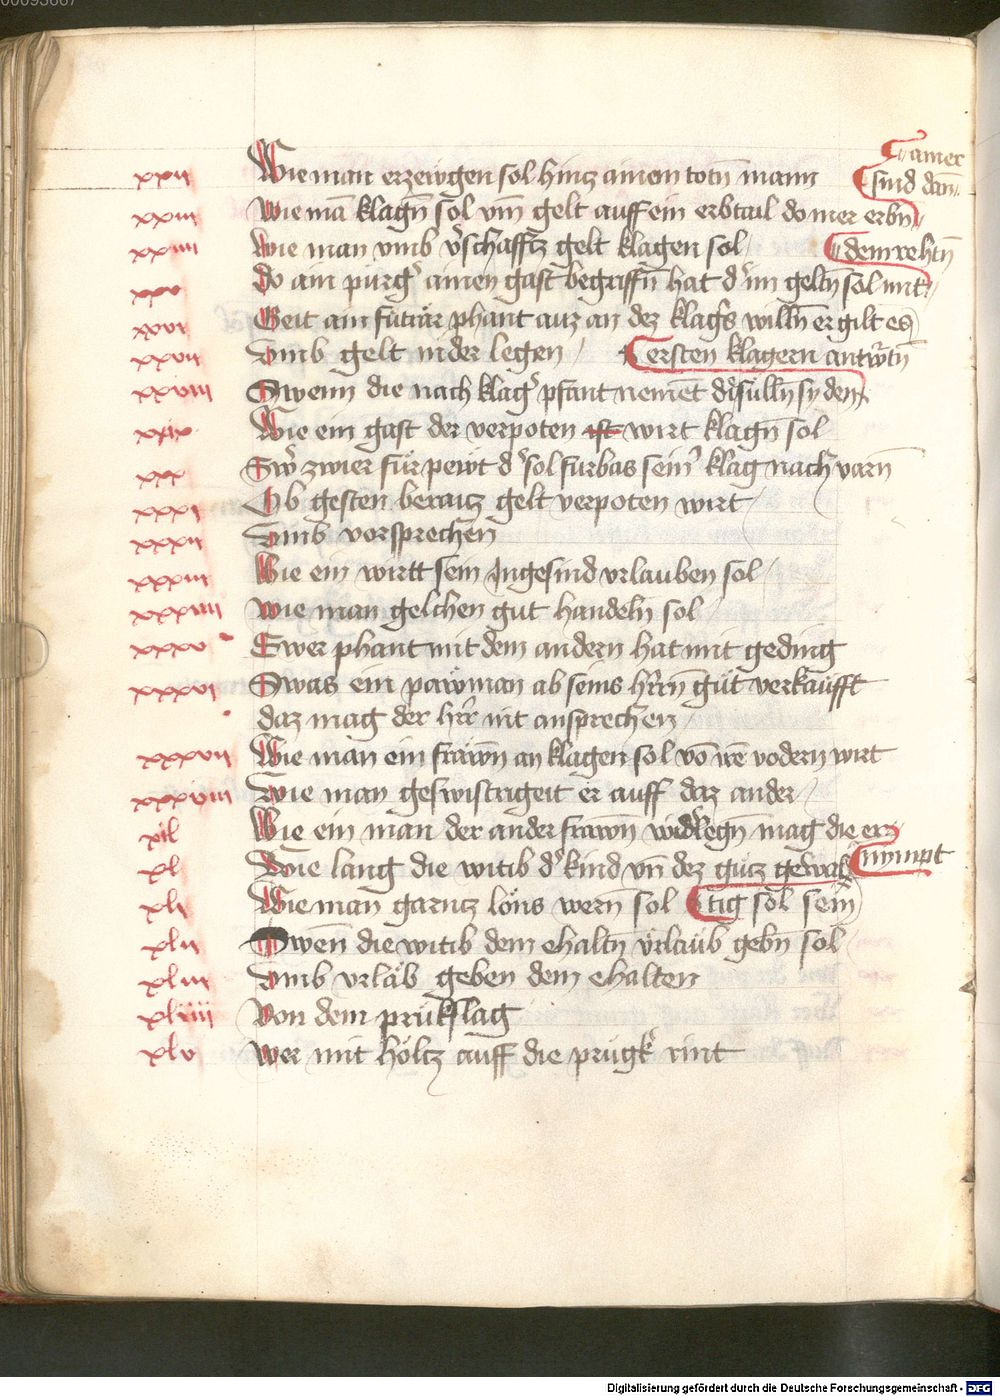 xxii Wie man erzewgen sol hintz ainem totn̄ mann
xxiii Wie mā klagn̄ sol vm̄ gelt auff ein erbtail do mer erbn̄
⸿ amer
sind dan̄
xxiiii Wie man vmb v̓schafftz gelt klagen sol
⸿ dem rehtn̄
xxv Do ain purg̓ ainen gast begriffn̄ hat d̓ im geltn̄ sol mit
xxvi Geit ain futrär phant auz an dez klag̓s willn̄ er gilt es
xxvii Vmb gelt nider legen
⸿ ersten klagern antw̓rtn̄
xxviii Swenn die nach klag̓ pfant nement di sulln̄ sy den
xxix Wie ein gast der verpoten ist wirt klagn̄ sol
xxx Sw̓ zwier für pewt d̓ sol furbas sein̓ klag nach varn̄
xxxi Ob gesten beraitz gelt verpoten wirt
xxxii Vmb vorsprechen
xxxiii Wie ein wirtt sein Ingesind vrlauben sol
xxxiiii Wie man gelchen gut handeln̄ sol
xxxv Swer phant mit dem andern hat mit geding
xxxvi Swas ein pawman ab seins hrr̄n gut verkaufft
daz mag der hrr̄ nit ansprechen
xxxvii Wie man ein frawn̄ an klagen sol vō we vodern wirt
xxxviii Wie man geswistrigeit er auff daz ander
xil Wie ein man der ander frawn̄ wid̓legn̄ mag die er
⸿ nympt
xl Wie lang die witib d̓ kind vn̄ dez gutz gewal
xli Wie man garntz löns wern̄ sol
⸿ tig sol sein
xlii Swen̄ die witib dem ehaltn̄ vrlaub gebn̄ sol
xliii Vmb vrläb geben dem ehalten
xliiii Von dem prükslag
xlv Wer mit höltz auff die prugk̓ rint
Digitalisierung gefördert durch die Deutsche Forschungsgemeinschaft - DFG